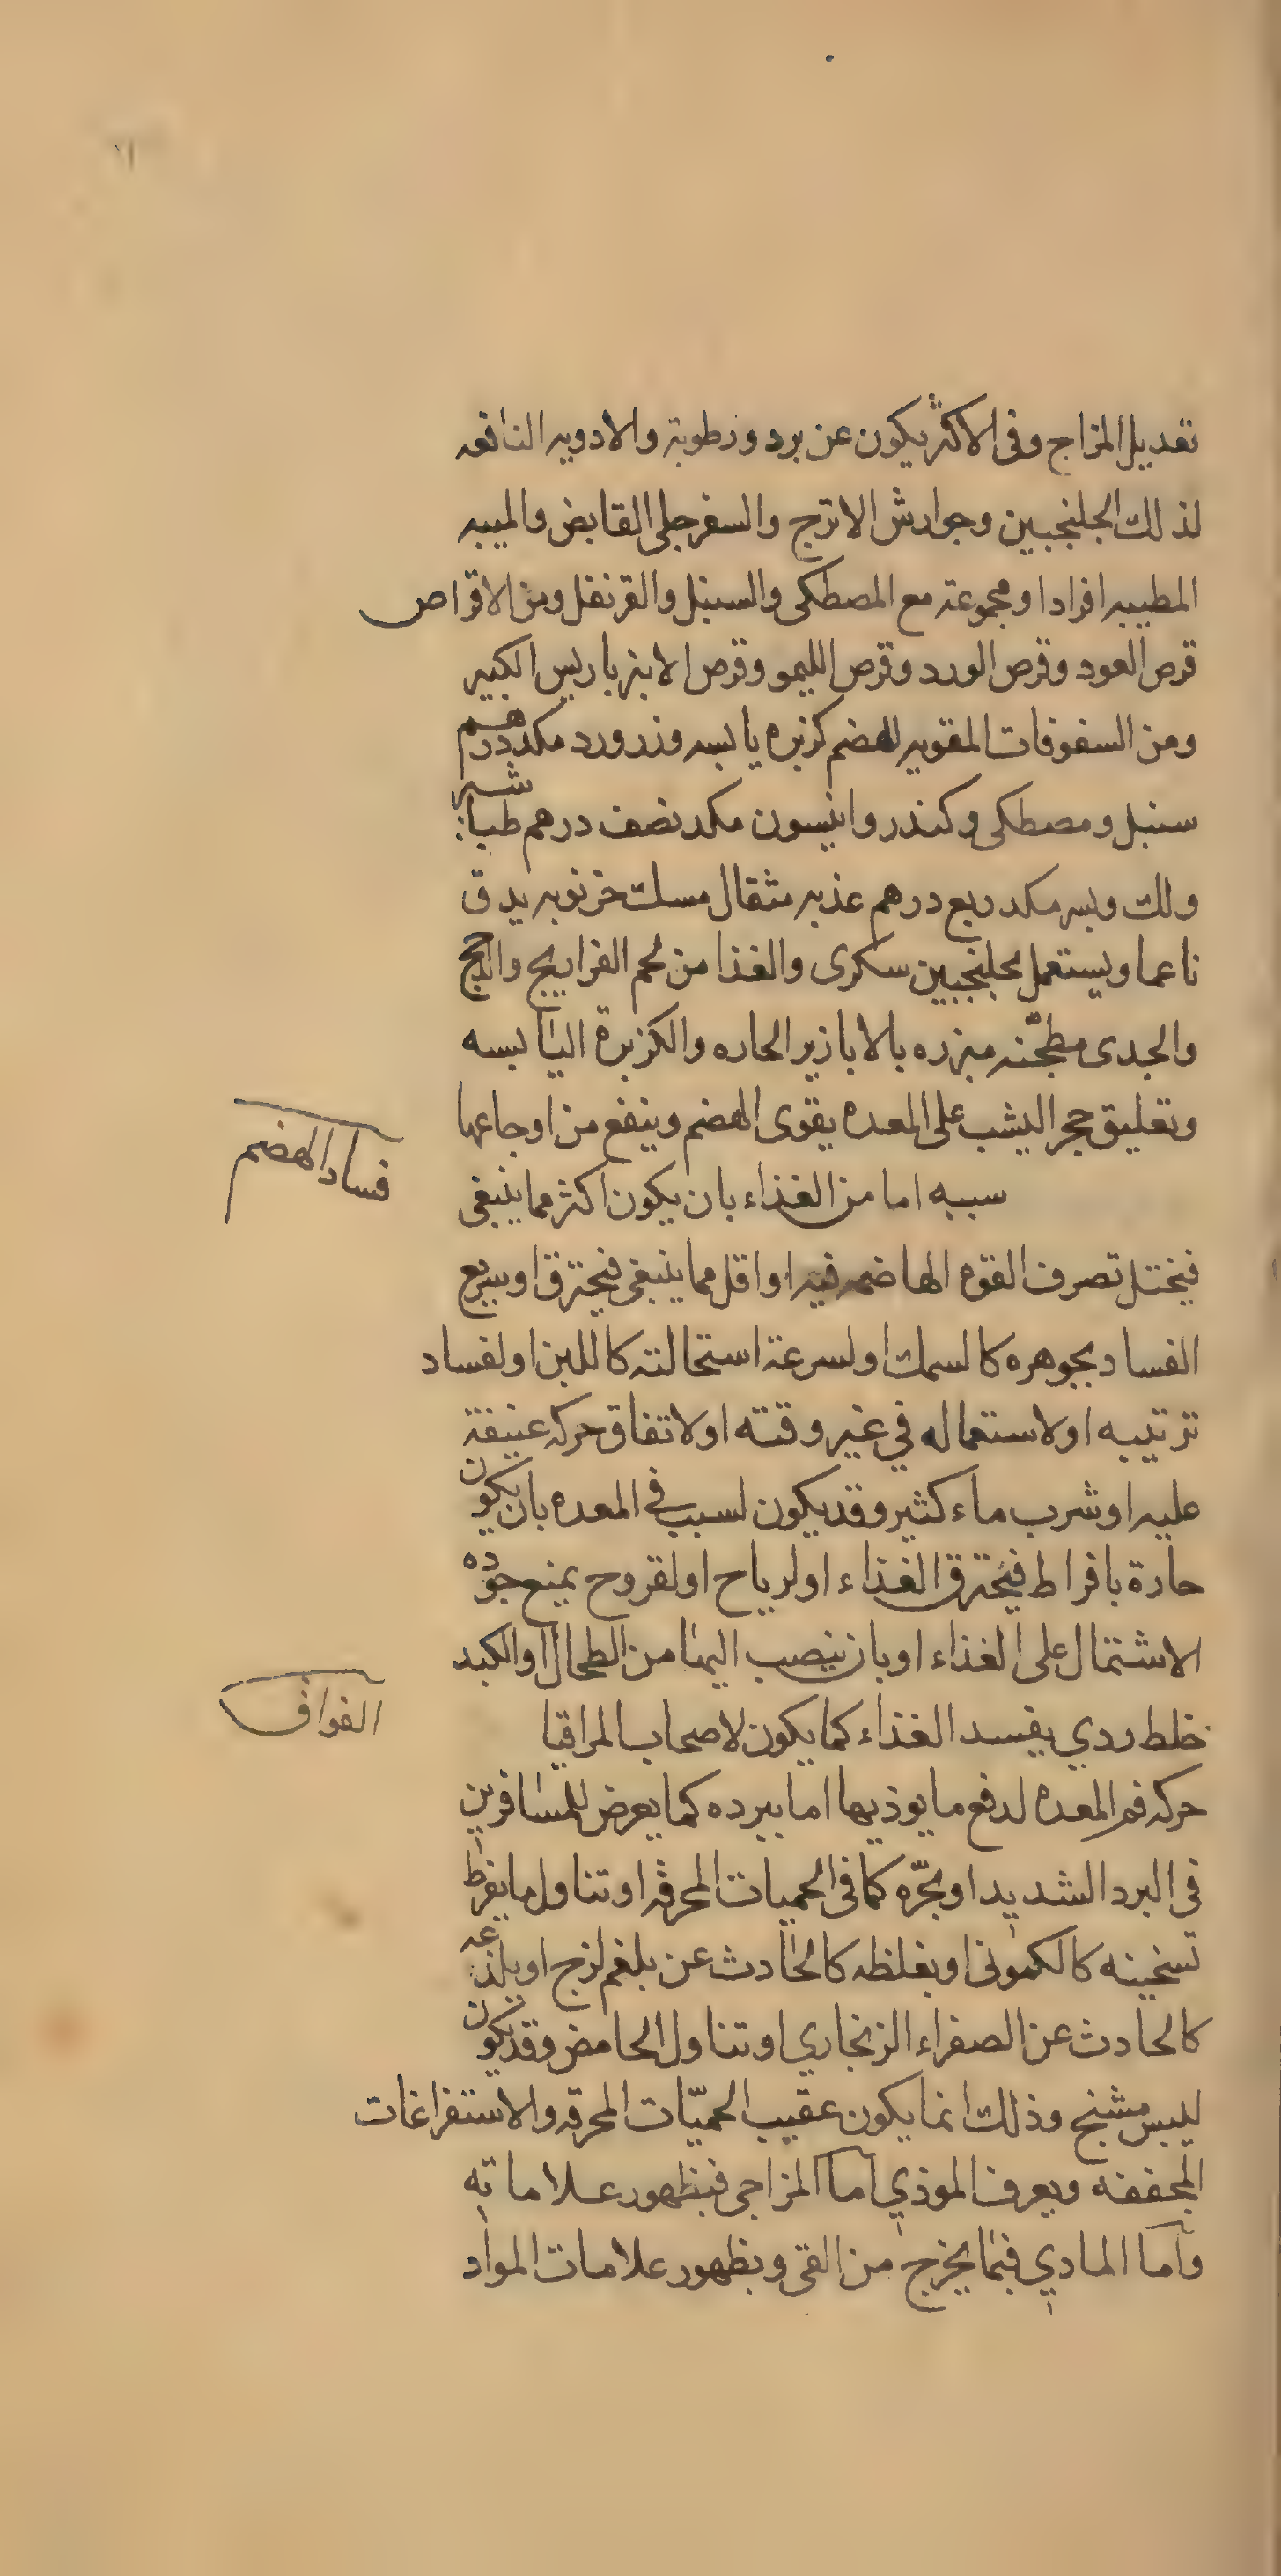 تعديل المزاج وفى الاكثر يكون عن برد ورطوبة والادويه النافعه
لذلك الجلنجبين وجوارش الاترج والسفرجلى القابض والميبه
المطيبه افرادا ومجموعة مع المصطكى والسنبل والقرنفل ومن الاقراص
قرص العود وقرص الورد وقرص الليمو وقرص الانبرباريس الكبير
ومن السفوفات المقويه للهضم كزبره يابسه وزر ورد مكد درهم
سنبل ومصطكى وكندر وانيسون مكد نصف درهم طباشير
ولك وبسه مكد ربع درهم عذبه مثقال مسك خرنوبه يدق
ناعما ويستعمل بجلنجبين سكرى والغذا من لحم الفراريج
والجدى مطجّنه مبزره بالابازير الحاره والكزبرة اليابسه
وتعليق حجر اليشب على المعده يقوى الهضم وينفع من اوجاعها
فساد الهضم
سببه اما من الغذاء بان يكون اكثر مما ينبغى
فيختل تصرف القوه الهاضمه فيه او اقل مما ينبغى فيحترق او سريع
الفساد بجوهره كالسمك او لسرعة استحالته كاللبن او لفساد
ترتيبه او لاستعماله في غير وقته او لاتفاق حركه عنيفة
عليه او شرب ماء كثير وقد يكون لسبب في المعده بان يكون
حارة بافراط فيحترق الغذاء او لرياح او لقروح يمنع جوده
الاشتمال على الغذاء او بان ينصب اليها من الطحال او الكبد
خلط ردي يفسد الغذاء كما يكون لاصحاب المراقيا
الفواق
حركه فم المعده لدفع ما يوذيها اما ببرده كما يعرض للمسافرين
فى البرد الشديد او بحرّه كما فى الحميات المحرقه او تناول ما يفرط
تسخينه كالكمونى او بغلظه كالحادث عن بلغم لزج او بلذعه
كالحادث عن الصفراء الزنجاري او تناول الحامض وقد يكون
ليبس مشنج وذلك انما يكون عقيب الحميّات المحرقه والاستفراغات
المجففه ويعرف الموذي اما المزاجى فبظهور علاماته
واما المادي فبما يخرج من القى وبظهور علامات المواد